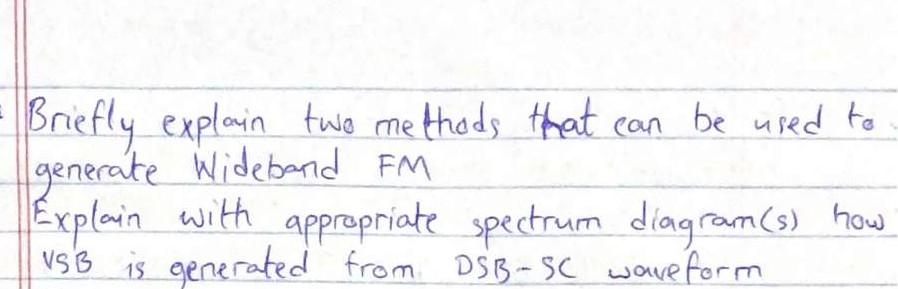 Briefly explain two methods that can be used to
generate Wideband FM
Explain with appropriate spectrum diagram(s) how
VSB is generated from DSB-SC waveform